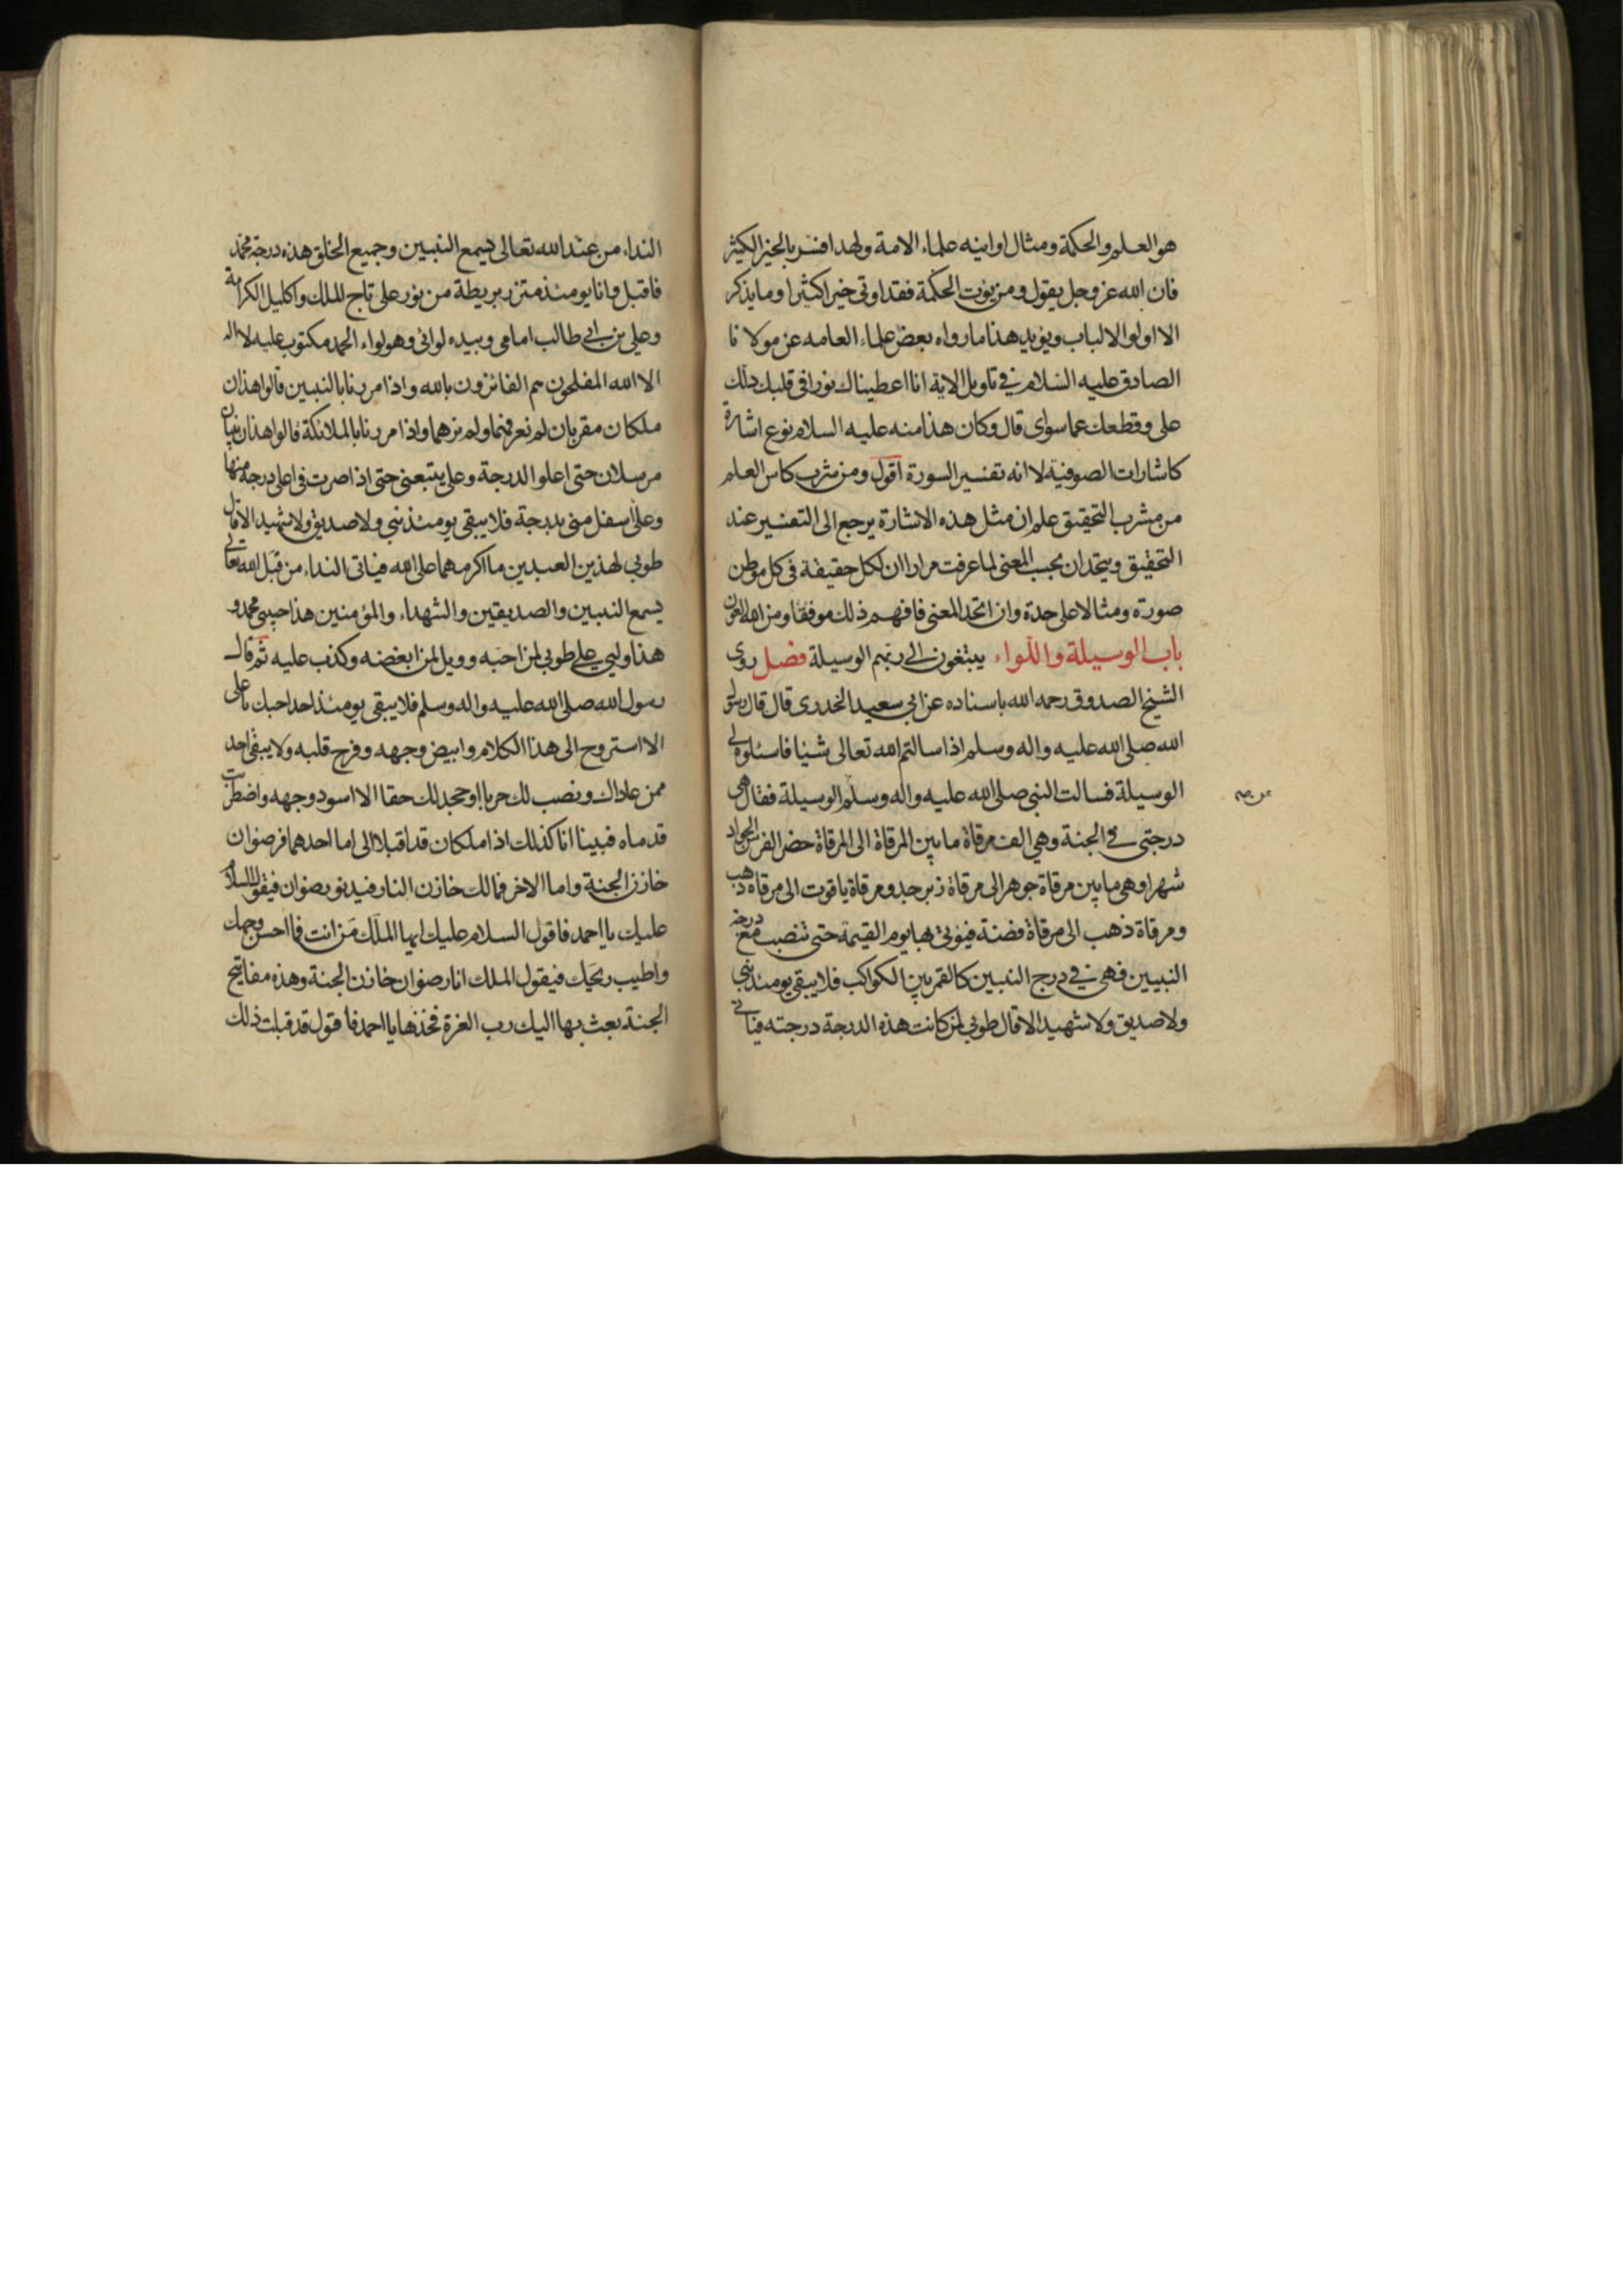 هو العلم والحكمة ومثال اوانيه علماء الامة ولهذا فسر بالخير الكثير
فان الله عز وجل يقول ومن يؤت الحكمة فقد اوتى خيرا كثيرا وما يذكر
الا اولوا الالباب ويؤيد هذا ما رواه بعض علماء العامه عن مولانا
الصادق عليه السلام في تاويل الاية انا اعطيناك نورا في قلبك دلك
على وقطعك عما سواى قال وكان هذا منه عليه السلام نوع اشارة
كاشارات الصوفية لا انه تفسير السورة اقول ومن شرب كاس العلم
من مشرب التحقيق علم ان مثل هذه الاشارة يرجع الى التفسير عند
التحقيق ويتحدان بحسب المعنى لما عرفت مرارا ان لكل حقيقة في كل موطن
صورة ومثالا على حدة وان اتحد المعنى فافهم ذلك موفقا ومن الله العون
باب الوسيلة واللواء يبتغون الى ربهم الوسيلة فصل روى
الشيخ الصدوق رحمه الله باسناده عن ابي سعيد الخدرى قال قال رسول
الله صلى الله عليه واله وسلم اذا سالتم الله تعالى شيئا فاسئلوه لي
الوسيلة فسالت النبي صلى الله عليه واله وسلم الوسيلة فقال هى
درجتي في الجنة وهي الف مرقاة ما بين المرقاة الى المرقاة حضر الفرس الجواد
شهرا وهى ما بين مرقاة جوهر الى مرقاة زبرجد ومرقاة ياقوت الى مرقاه ذهب
ومرقاة ذهب الى مرقاة فضة فيؤتى بها يوم القيمة حتى تنصب مع درجة
النبيين فهى في درج النبيين كالقمر بين الكواكب فلا يبقى يومئذ نبي
ولا صديق ولا شهيد الا قال طوبى لمن كانت هذه الدرجة درجته فياتي
النداء من عند الله تعالى يسمع النبيين وجميع الخلق هذه درجة محمد
فاقبل وانا يومئذ متزر بريطة من نور على تاج الملك واكليل الكرامة
وعلي بن ابي طالب امامى وبيده لوائي وهو لواء الحمد مكتوب عليه لا اله
الا الله المفلحون هم الفائزون بالله واذا مررنا بالنبيين قالوا هذان
ملكان مقربان لم نعرفهما ولم نرهما واذا مررنا بالملائكة قالوا هذان نبيان
مرسلان حتى اعلو الدرجة وعلي يتبعني حتى اذا صرت في اعلى درجة منها
وعلى اسفل منى بدرجة فلا يبقى يومئذ نبي ولا صديق ولا شهيد الا قال
طوبى لهذين العبدين ما اكرمهما على الله فياتي النداء من قبل الله تعالى
يسمع النبيين والصديقين والشهداء والمؤمنين هذا حبيبي محمد و
هذا وليي علي طوبى لمن احبه وويل لمن ابغضه وكذب عليه ثم قال
رسول الله صلى الله عليه واله وسلم فلا يبقى يومئذ احد احبك يا على
الا استروح الى هذا الكلام وابيض وجهه وفرح قلبه ولا يبقى احد
ممن عاداك ونصب لك حربا او جحد لك حقا الا اسود وجهه واضطربت
قدماه فبينا انا كذلك اذا ملكان قد اقبلا الى اما احدهما فرضوان
خازن الجنة واما الاخر فمالك خازن النار فيدنو رضوان فيقول السلام
عليك يا احمد فاقول السلام عليك ايها الملك من انت فما احسن وجهك
واطيب ريحك فيقول الملك انا رضوان خازن الجنة وهذه مفاتيح
الجنة بعث بها اليك رب العزة فخذها يا احمد فاقول قد قبلت ذلك